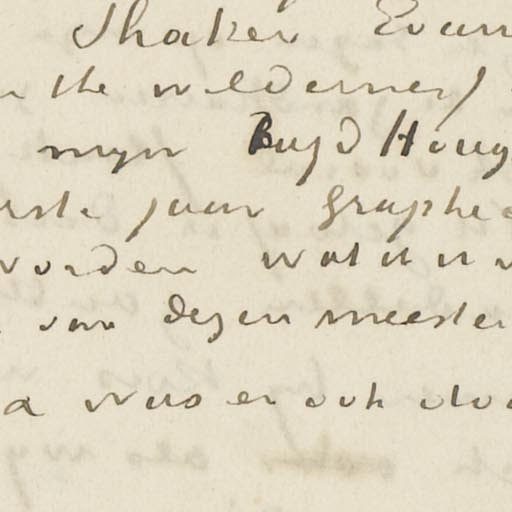 Shaker Evan
n the wilderness
mijn Buyd Houg
erste jaar Graphic
worden wat it is
van dezen meester
a was er ook